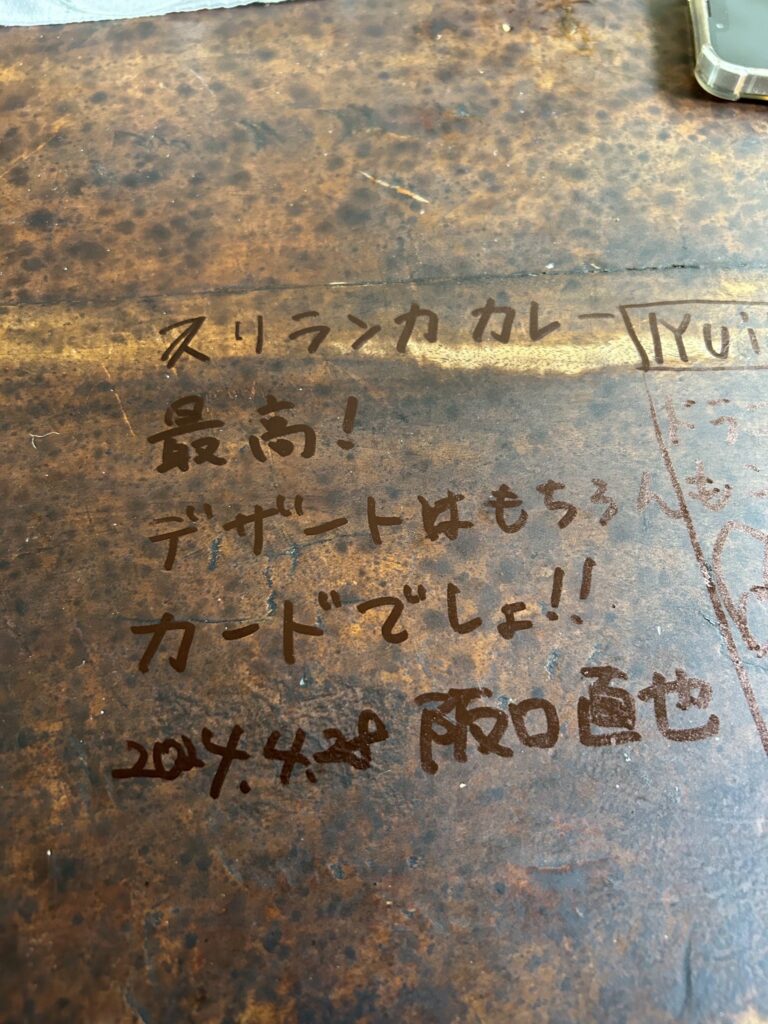 スリランカ カレー
最高!
デザートはもちろん
カードでしょ!!
2024.4.28 阪口直也
Yui
ドラ